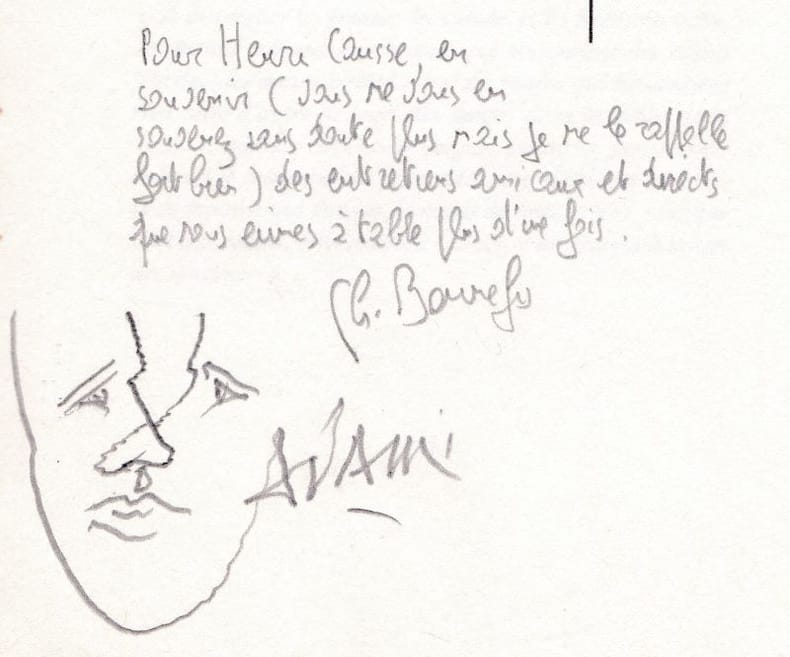 Pour Henri Causse, en
souvenir (vous ne vous en
souvenez sans doute plus mais je me le rappelle
fort bien) des entretiens amicaux et directs
que nous eûmes à table plus d'une fois.
Ch.
ADAMI